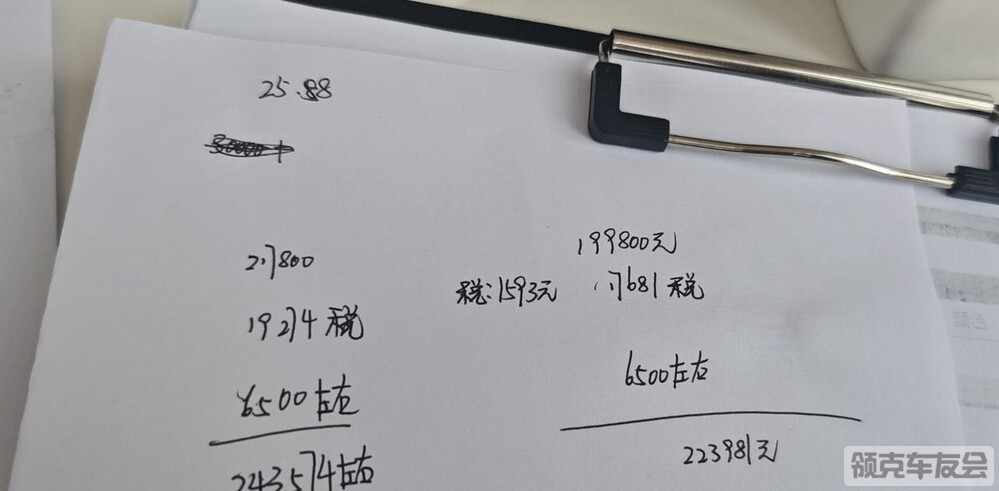 25.88
30000+
217800
19274税
6500左右
243574左右
199800元
税:1593元 17681税
6500左右
223981元
颜色
领克车友会